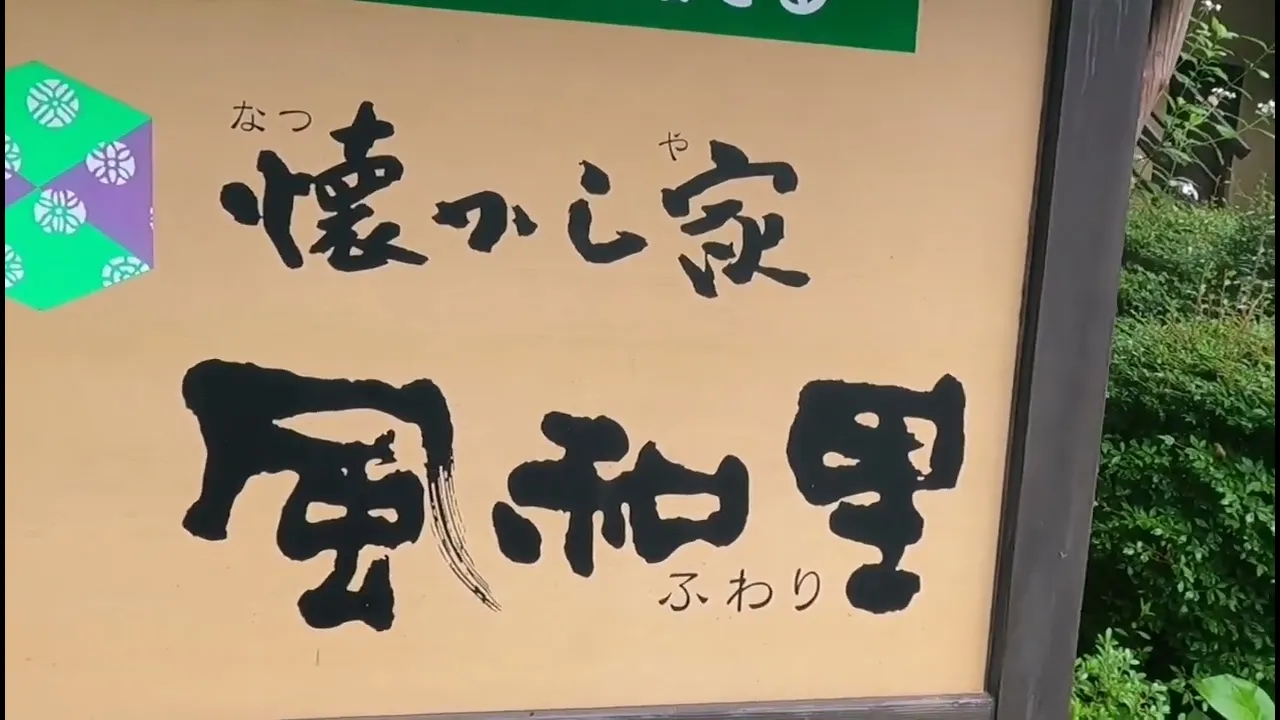 なつ や
懐かし家
風和里
ふわり